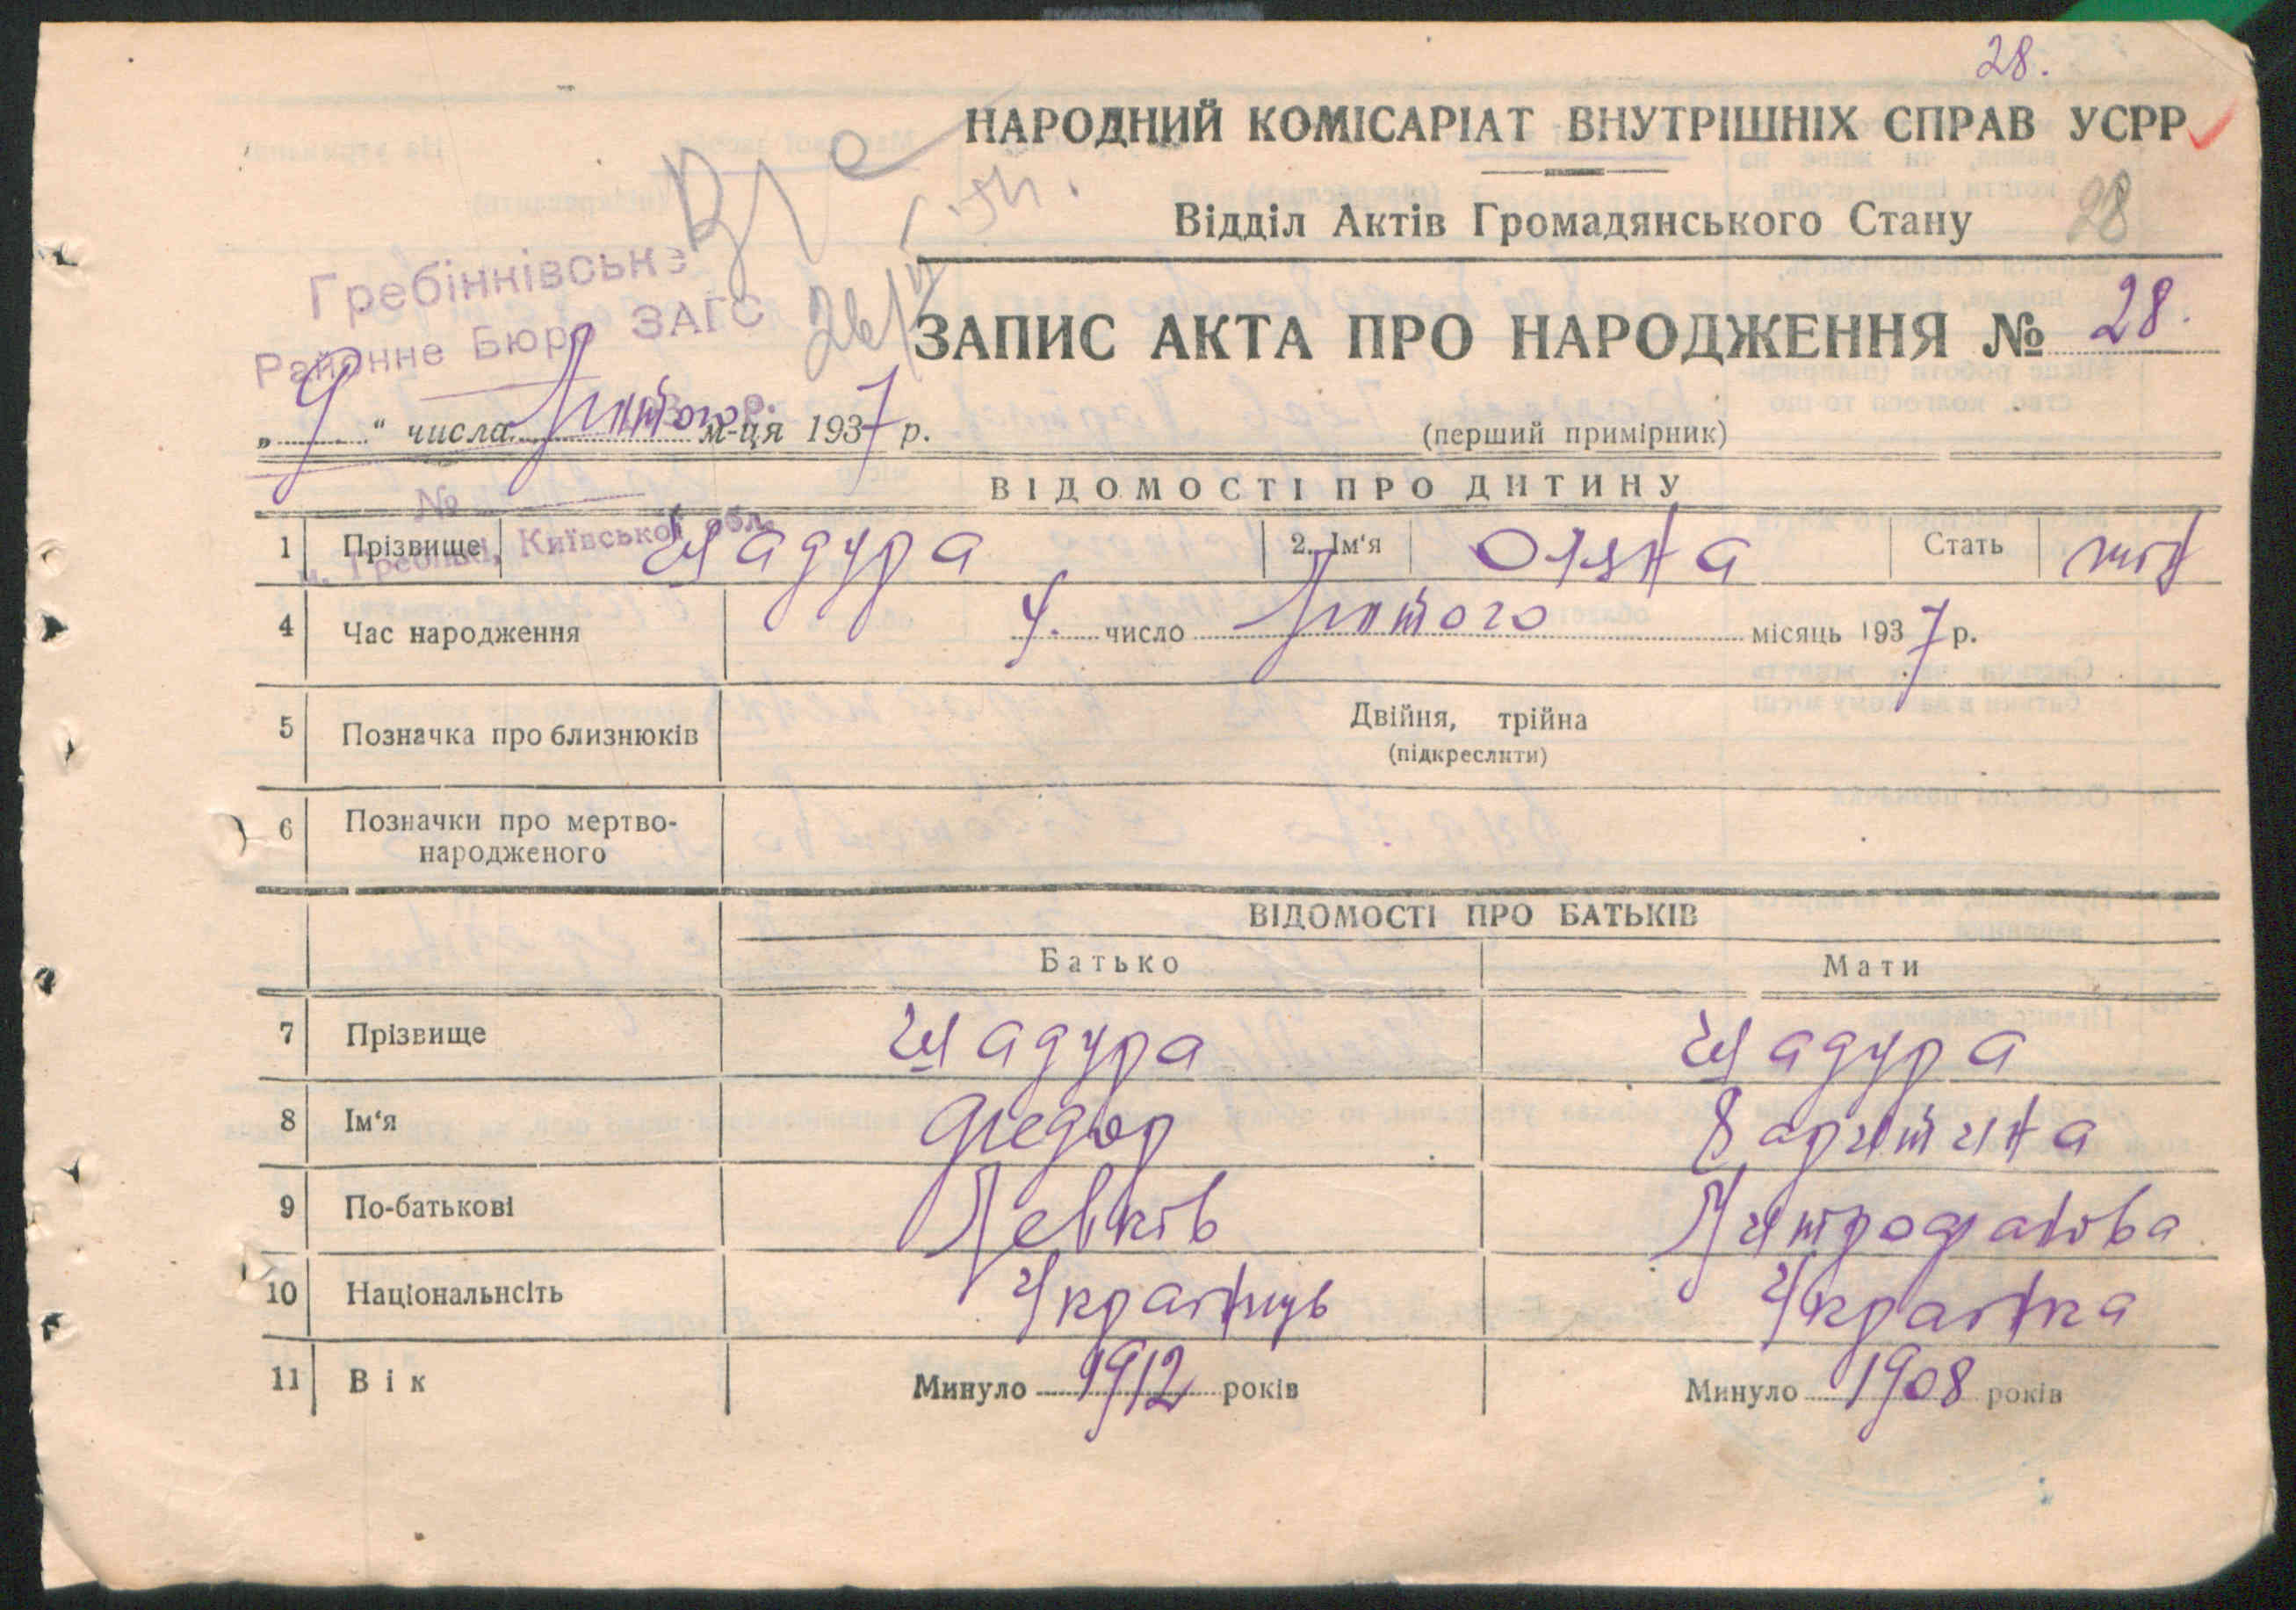 28.
НАРОДНИЙ КОМІСАРІАТ ВНУТРІШНІХ СПРАВ УСРР
28
Відділ Актів Громадянського Стану
Гребінківське
Районне Бюро ЗАГС
ЗАПИС АКТА ПРО НАРОДЖЕННЯ № 28.
„ 9 “ числа Лютого м-ця 1937 р.
(перший примірник)
№
м. Гребінки, Київської обл.
ВІДОМОСТІ ПРО ДИТИНУ
1 Прізвище Шадура 2. Ім'я Оляна Стать жін
4 Час народження 4. число Лютого місяць 1937 р.
5 Позначка про близнюків Двійня, трійна
(підкреслити)
6 Позначки про мертво-
народженого
ВІДОМОСТІ ПРО БАТЬКІВ
Батько Мати
7 Прізвище Шадура Шадура
8 Ім'я Федор Харитина
9 По-батькові Левків Митрофанова
10 Національнсіть Українець Українка
11 Вік Минуло 1912 років Минуло 1908 років